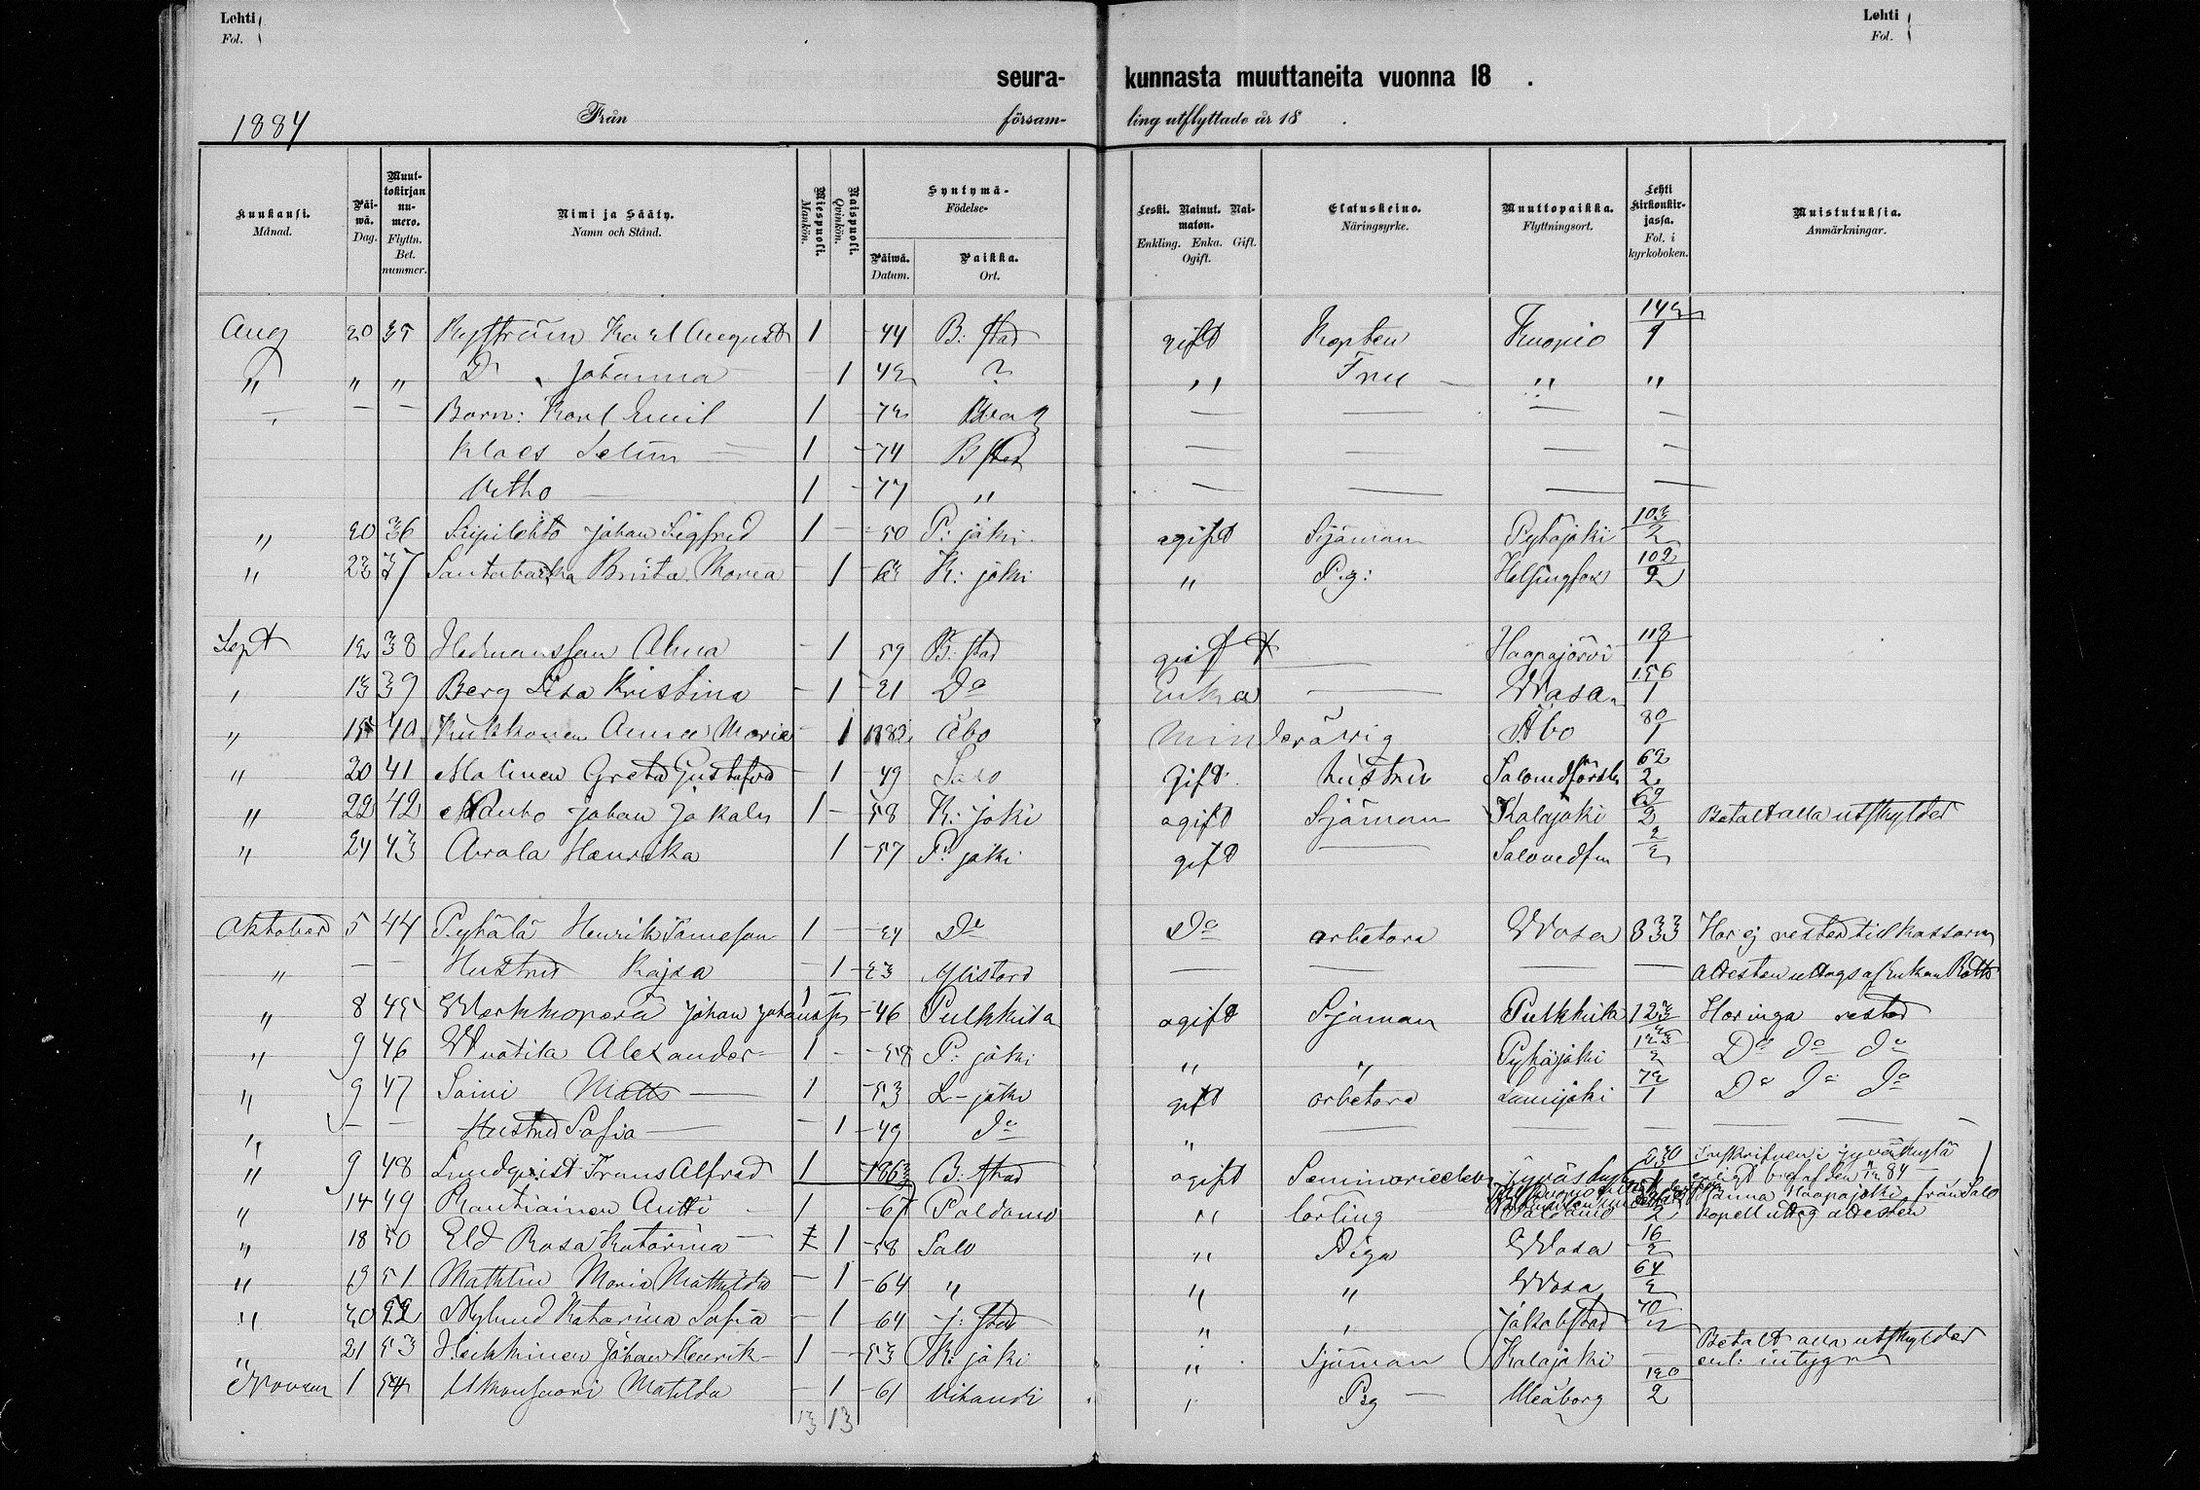 Lehti
Fol.
Lehti
Fol.
seura- kunnasta muuttaneita vuonna 18 .
1884 Från försam- ling utflyttade år 18 .
Kuukausi. Månad.
Päi-wä. Dag.
Muut-tokirjan nu-mero. Flyttn. Bet. nummer.
Nimi ja Sääty. Namn och Stånd.
Miespuoli. Mankön.
Naispuoli. Qvinkön.
Syntymä- Födelse-
Päiwä. Datum.
Paikka. Ort.
Leski. Nainut. Nai-maton. Enkling. Enka. Gift. Ogift.
Elatuskeino. Näringsyrke.
Muuttopaikka. Flyttningsort.
Lehti kirkonkir-jassa. Fol. i kyrkoboken.
Muistutuksia. Anmärkningar.
Aug 20 35 Karl August 1 44 B: stad gift Kapten Kuopio 142/1
" " " D:o Johanna 1 42 ? " Fru " "
Barn: Karl Emil 1 72
Klaes Selim 1 74 B stad
1 77 "
" 20 36 Siipilehto Johan Sigfrid 1 50 P: joki ogift Sjöman Pyhäjoki 103/2
" 23 37 Santabacka Brita Maria 1 63 K: joki " Pig: Helsingfors 102/2
Sept 12 38 Hermansson Alma 1 59 B: stad gift Haapajärvi 113/1
" 13 39 Berg Lisa Kristina 1 21 D:o Enka Wasa 156/1
" 15 40 Kukkonen Anna Maria 1 1882 Åbo Minderårig Åbo 80/1
" 20 41 Matinen Greta Gustafva 1 49 Salo Gift hustru 62/2
" 22 42 Johan Jakob 1 58 K: joki ogift Sjöman Kalajoki 69/2 Betalt alla utskylder
" 24 43 Arvola Henrika 1 57 P: joki gift 2/2
Oktober 5 44 Pyhälä Henrik 1 24 D:o D:o arbetare Wasa 333 Har ej rester till kassorna
" Hustru Kajsa 1 23 Attesten uttogs af Enkan
" 8 45 Johan 1 46 Pulkkila ogift Sjöman Pulkkila 123 Har inga rester
" 9 46 Alexander 1 58 P: joki " " Pyhäjoki 123/2 D:o D:o D:o
" 9 47 Saini Matts 1 53 L-joki gift arbetare Lumijoki 72/1 D:o D:o D:o
" Hustru Sofia 1 49 D:o "
" 9 48 Lundqvist Frans Alfred 1 1863 B: stad ogift Seminarieelev 230/1 Inskrifven i Jyväskylä
enligt bref af den 84
" 14 49 Rautiainen Antti 1 67 Paldamo " lärling Paldamo 2 Sanna Haapajoki från Salo
kapell uttog attesten
" 18 50 Eld Rosa Katarina 1 58 Salo " Piga Wasa 16/2
" 19 51 Mathlin Maria Mathilda 1 64 " " " Wasa 64/2
" 20 52 Nylund Katarina Sofia 1 64 J: stad " " Jakobstad 70/2
" 21 53 Heikkinen Johan Henrik 1 53 K: joki " Sjöman Kalajoki Betalt alla utskylder
enl: intyg
Novem 1 54 Matilda 1 61 Vihandi " Pig Uleåborg 120/2
13 13